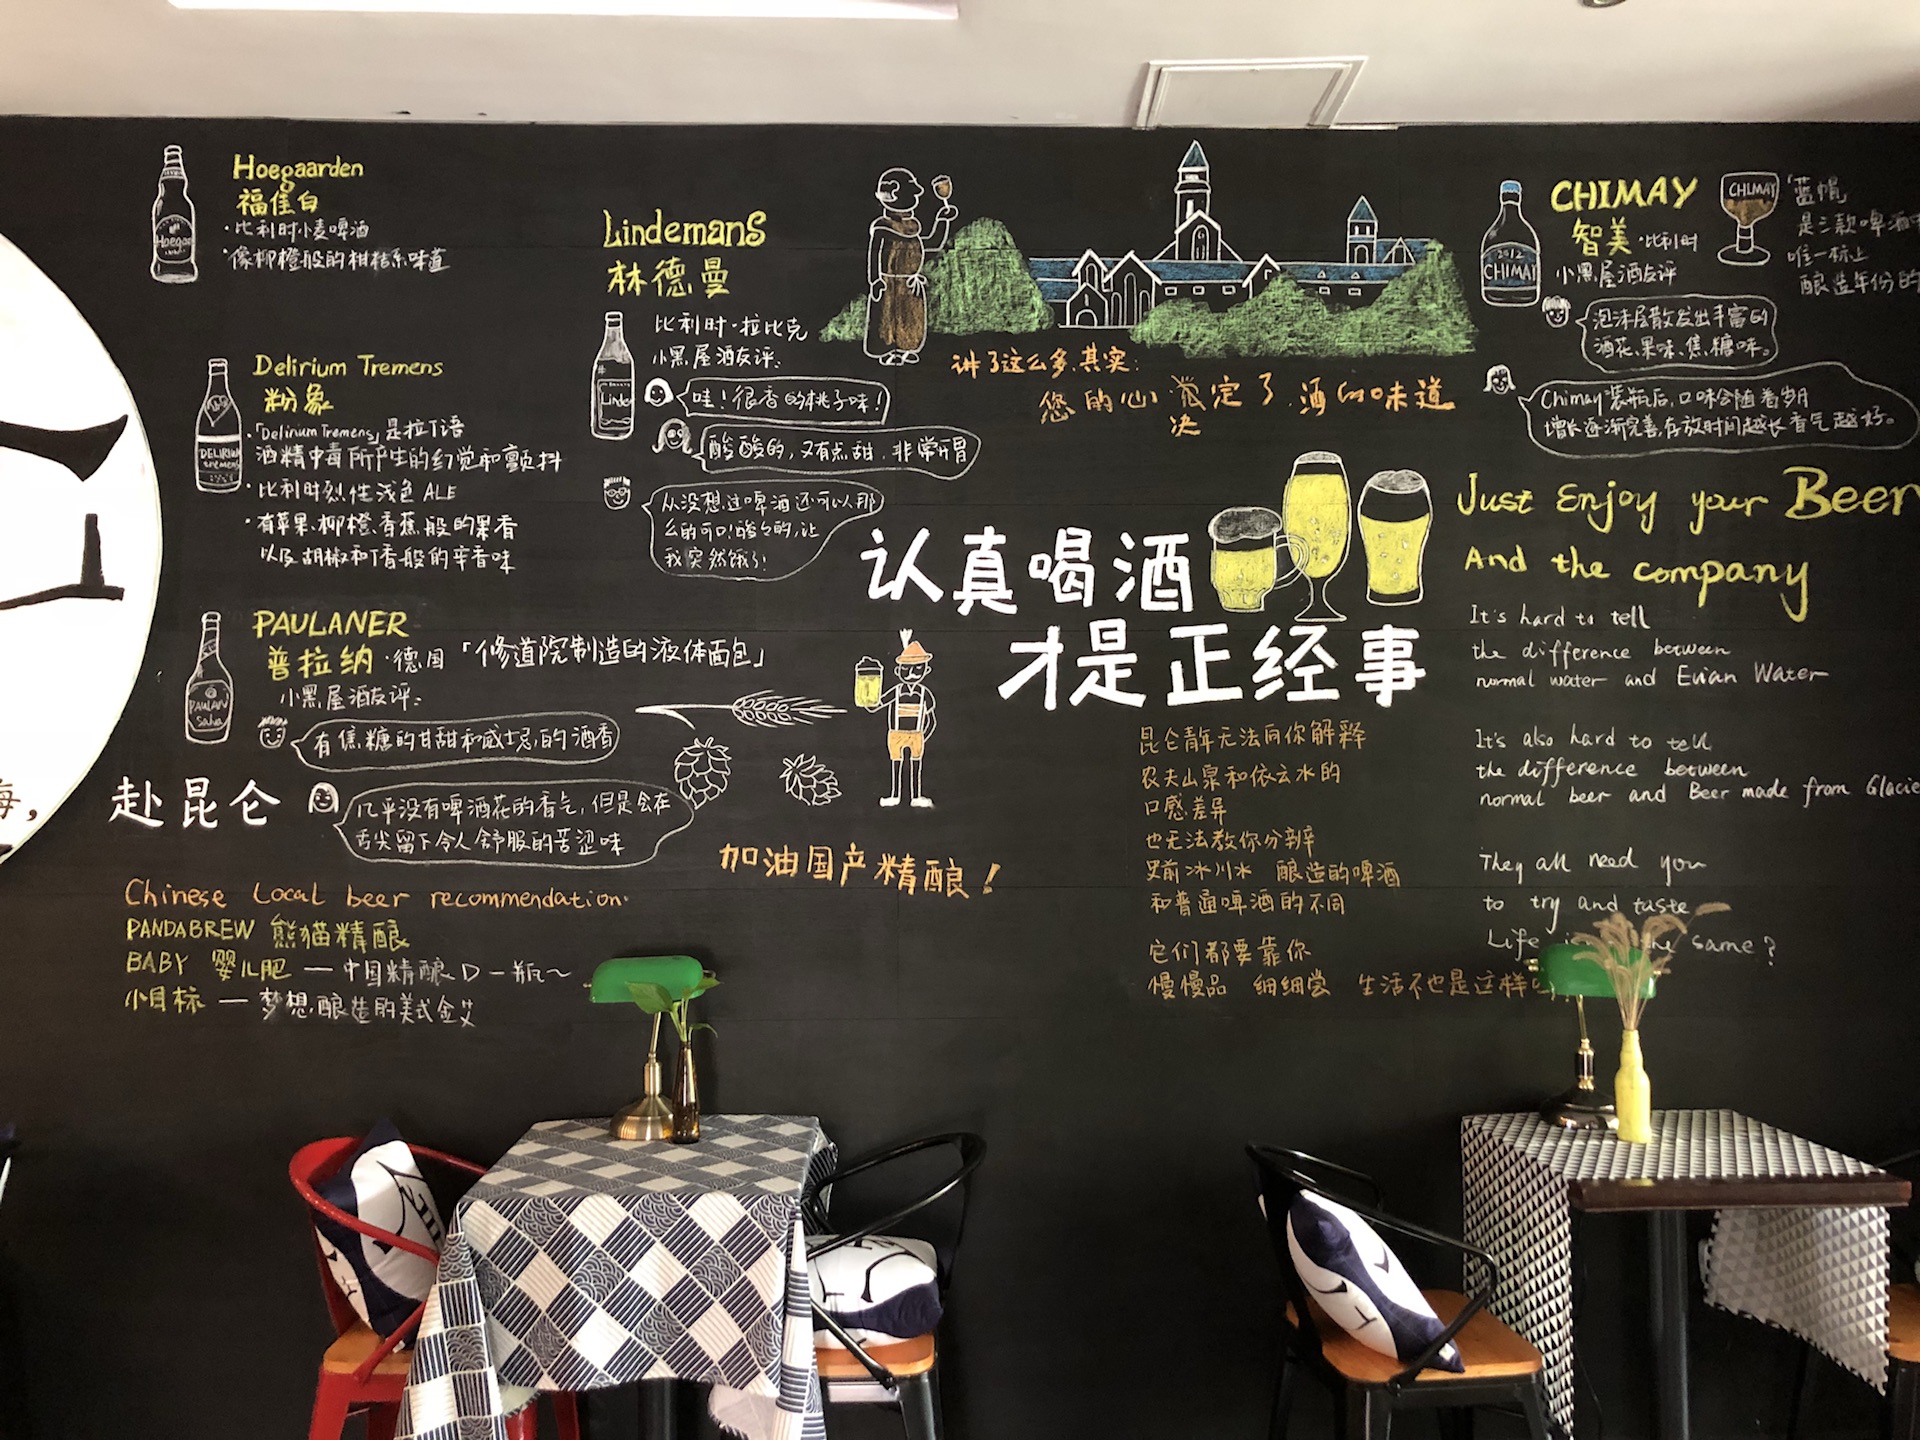 Hoegaarden
福佳白
·比利时小麦啤酒
·像柳橙般的柑桔系味道
Hoegaar
Delirium Tremens
粉象
·「Delirium Tremens」是拉丁语
酒精中毒所产生的幻觉和颤抖
·比利时烈性浅色 ALE
·有苹果、柳橙、香蕉般的果香
以及胡椒和丁香般的辛香味
DELIRIUM
tremens
PAULANER
普拉纳·德国「修道院制造的液体面包」
小黑屋酒友评：
PAULAN
有焦糖的甘甜和威士忌的酒香
几乎没有啤酒花的香气，但是会在
舌尖留下令人舒服的苦涩味
海，
赴昆仑
Chinese Local beer recommendation:
PANDABREW 熊猫精酿
BABY 婴儿肥 — 中国精酿 D 一瓶～
小目标 — 梦想酿造的美式金艾
Lindemans
林德曼
比利时·拉比克
小黑屋酒友评：
Linde
哇！很香的桃子味！
酸酸的，又有点甜，非常开胃
从没想过啤酒还可以那
么的可口，酸々的，让
我突然饿了！
讲了这么多，其实：
您的心决定了，酒的味道
认真喝酒
才是正经事
加油国产精酿！
昆仑青年无法向你解释
农夫山泉和依云水的
口感差异
也无法教你分辨
史前冰川水 酿造的啤酒
和普通啤酒的不同
它们都要靠你
慢慢品 细细尝 生活不也是这样
CHIMAY
智美·比利时
小黑屋酒友评
2012
CHIMAY
CHIMAY
「蓝帽」
是三款啤酒中
唯一标上
酿造年份的
泡沫层散发出丰富的
酒花、果味、焦糖味。
Chimay装瓶后，口味会随着岁月
增长逐渐完善，存放时间越长香气越好。
Just Enjoy your Beer
And the company
It's hard to tell
the difference between
normal water and Evian Water
It's also hard to tell
the difference between
normal beer and Beer made from Glacie
They all need you
to try and taste
Life same?